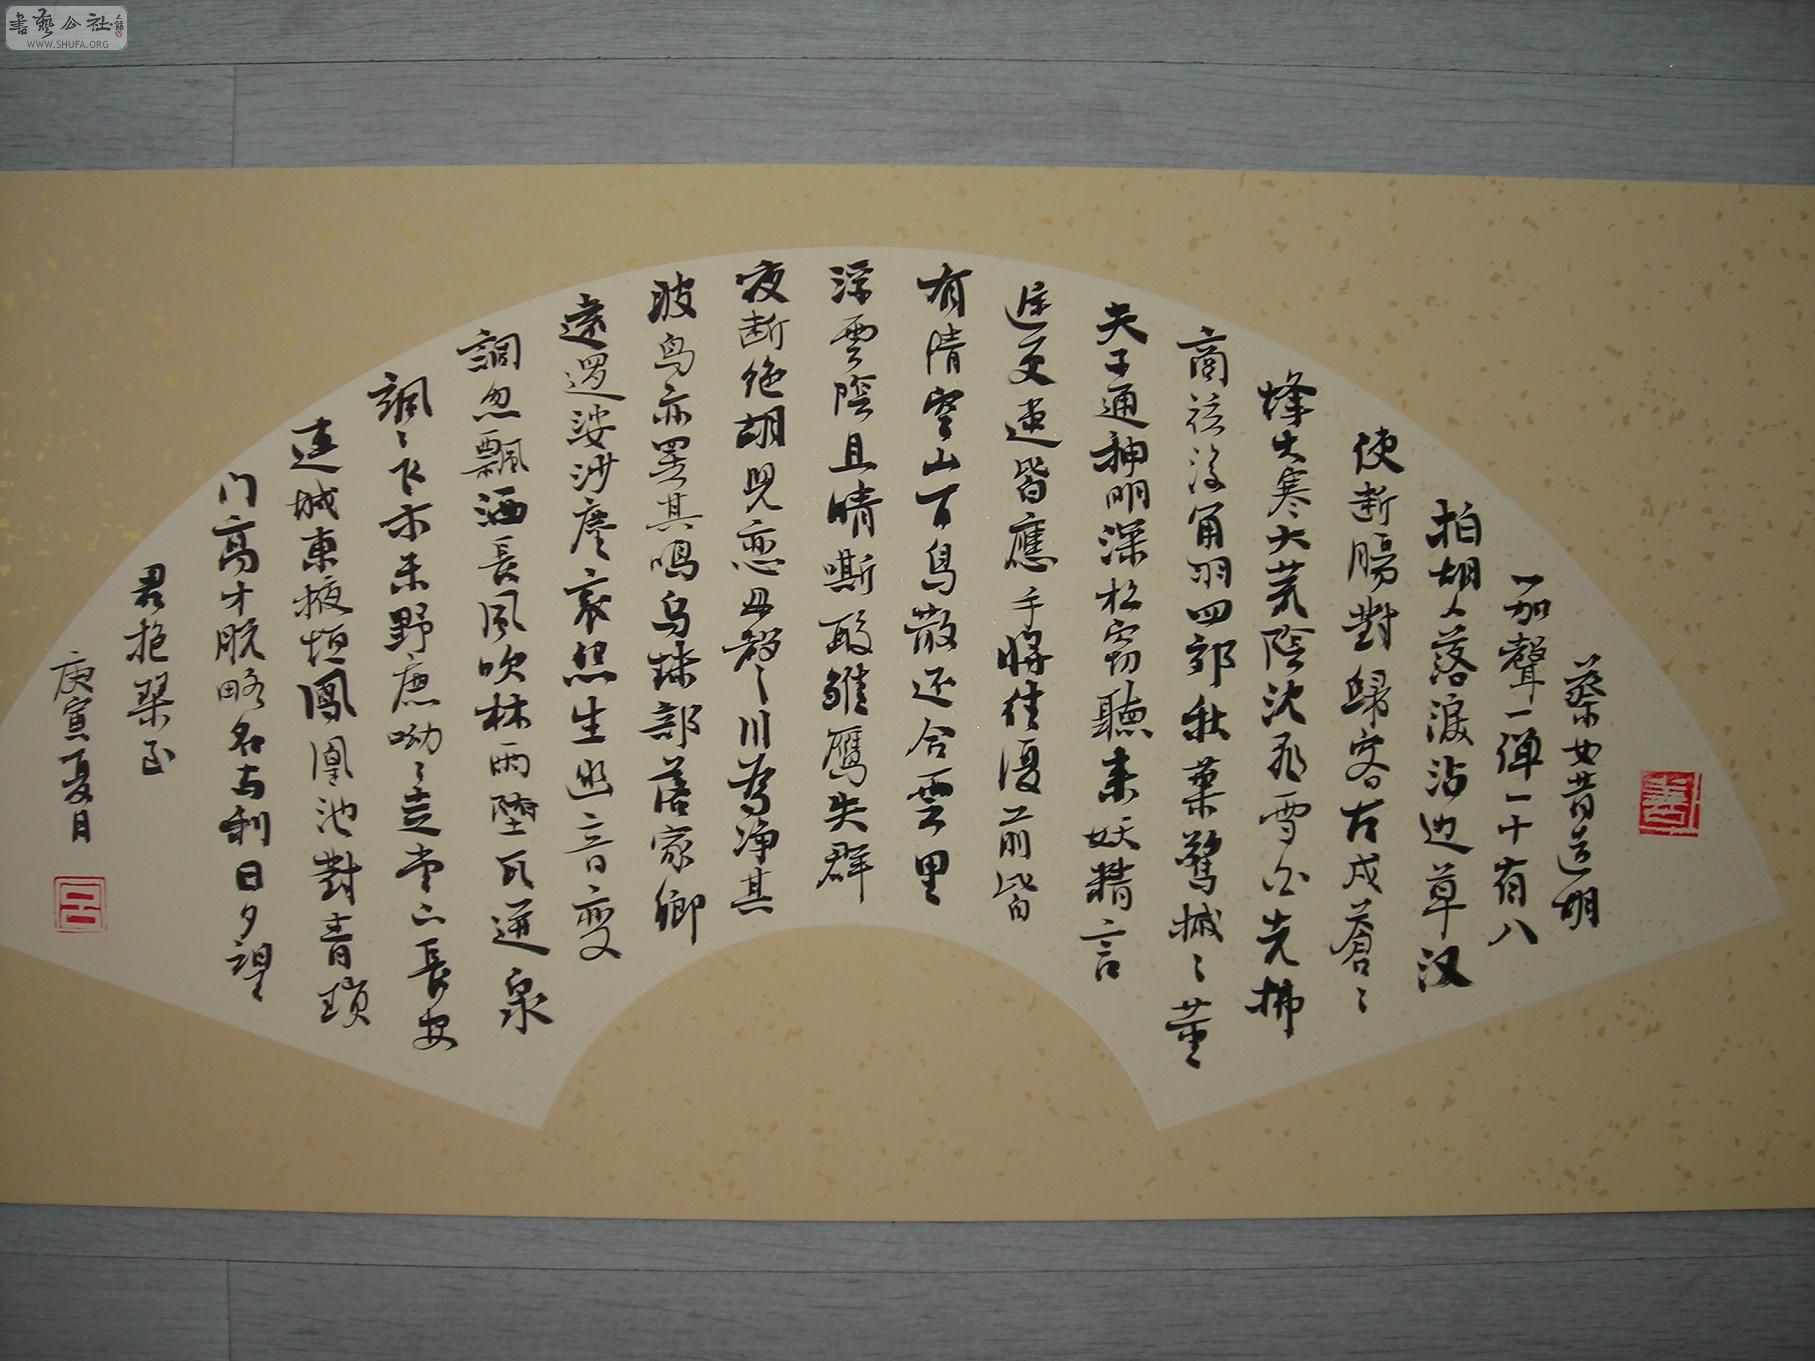 書藝公社
WWW.SHUFA.ORG
蔡女昔造胡
笳聲一弹一十有八
拍胡人落淚沾边草汉
使断腸對歸客古戍蒼〻
烽火寒大荒陰沈飛雪白先拂
商弦後角羽四郊秋葉驚摵〻董
夫子通神明深松窃聽来妖精言
遲更速皆應手將往復前皆
有情空山百鳥散还合雲里
浮雲陰且晴嘶酸雛鷹失群
夜断绝胡児恋母聲〻川為净其
波鸟亦罢其鳴乌珠部落家鄉
遠邏娑沙塵哀怨生幽音變
調忽飄洒長風吹林雨墮瓦迸泉
颯〻飞木末野鹿呦〻走堂下長安
连城東掖垣鳳凰池對青瑣
门高才脱略名与利日夕望
君抱琴至
庚寅夏月